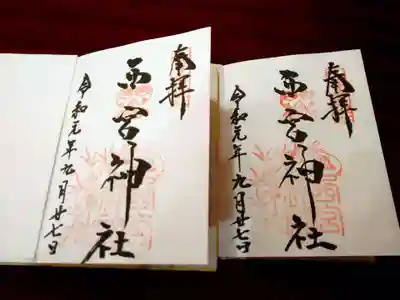 奉拝
西宮神社
令和元年九月廿七日
奉拝
西宮神社
令和元年九月廿七日